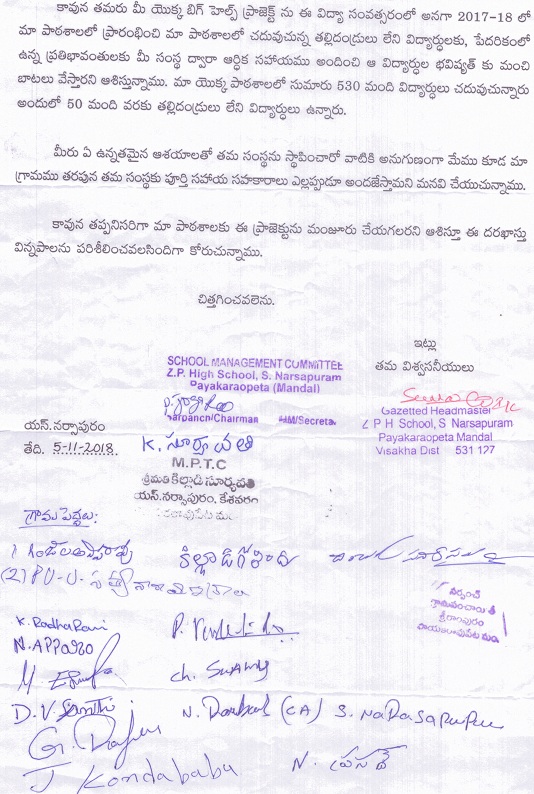 కావున తమరు మీ యొక్క బిగ్ హెల్ప్ ప్రాజెక్ట్ ను ఈ విద్యా సంవత్సరంలో అనగా 2017-18 లో
మా పాఠశాలలో ప్రారంభించి మా పాఠశాలలో చదువుచున్న తల్లిదండ్రులు లేని విద్యార్ధులకు, పేదరికంలో
ఉన్న ప్రతిభావంతులకు మీ సంస్థ ద్వారా ఆర్ధిక సహాయము అందించి ఆ విద్యార్ధుల భవిష్యత్ కు మంచి
బాటలు వేస్తారని ఆశిస్తున్నాము. మా యొక్క పాఠశాలలో సుమారు 530 మంది విద్యార్ధులు చదువుచున్నారు
అందులో 50 మంది వరకు తల్లిదండ్రులు లేని విద్యార్ధులు ఉన్నారు.
మీరు ఏ ఉన్నతమైన ఆశయాలతో తమ సంస్థను స్థాపించారో వాటికి అనుగుణంగా మేము కూడ మా
గ్రామము తరపున తమ సంస్థకు పూర్తి సహాయ సహకారాలు ఎల్లప్పుడూ అందజేస్తామని మనవి చేయుచున్నాము.
కావున తప్పనిసరిగా మా పాఠశాలకు ఈ ప్రాజెక్టును మంజూరు చేయగలరని ఆశిస్తూ ఈ దరఖాస్తు
విన్నపాలను పరిశీలించవలసిందిగా కోరుచున్నాము.
చిత్తగించవలెను.
ఇట్లు
తమ విశ్వసనీయులు
SCHOOL MANAGEMENT COMMITTEE
Z.P. High School, S. Narsapuram
Payakaraopeta (Mandal)
Sarpanch/Chairman HM/Secreta
Gazetted Headmaster
Z P H School, S Narsapuram
Payakaraopeta Mandal
Visakha Dist 531 127
యస్.నర్సాపురం
తేది. 5-11-2018.
K. సూర్యవతి
M.P.T.C
శ్రీమతి కిల్లాడి సూర్యవతి
యస్.నర్సాపురం, కేశవరం
గ్రామ పెద్దలు:
కిల్లాడి గోవింద
సర్పంచ్
గ్రామపంచాయితీ
శ్రీరాంపురం
పాయకరావుపేట మం.
K. Radha Rani
N. APPARAO
Ch. Swamy
D.V. Santhi
J Kondababu
N. ప్రసాద్